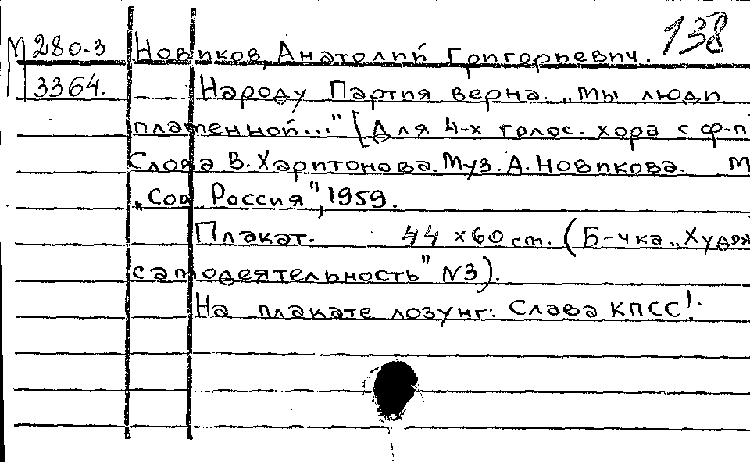 138
М 280-3 Новиков, Анатолий Григорьевич.
3364. Народу Партия верна. „Мы люди
пламенной..." [Для 4-х голос. хора с ф-п
Слова В. Харитонова. Муз. А. Новикова. М
„Сов. Россия", 1959.
Плакат. 44 х 60 см. (Б-чка „Худож
самодеятельность" №3).
На плакате лозунг: Слава КПСС!